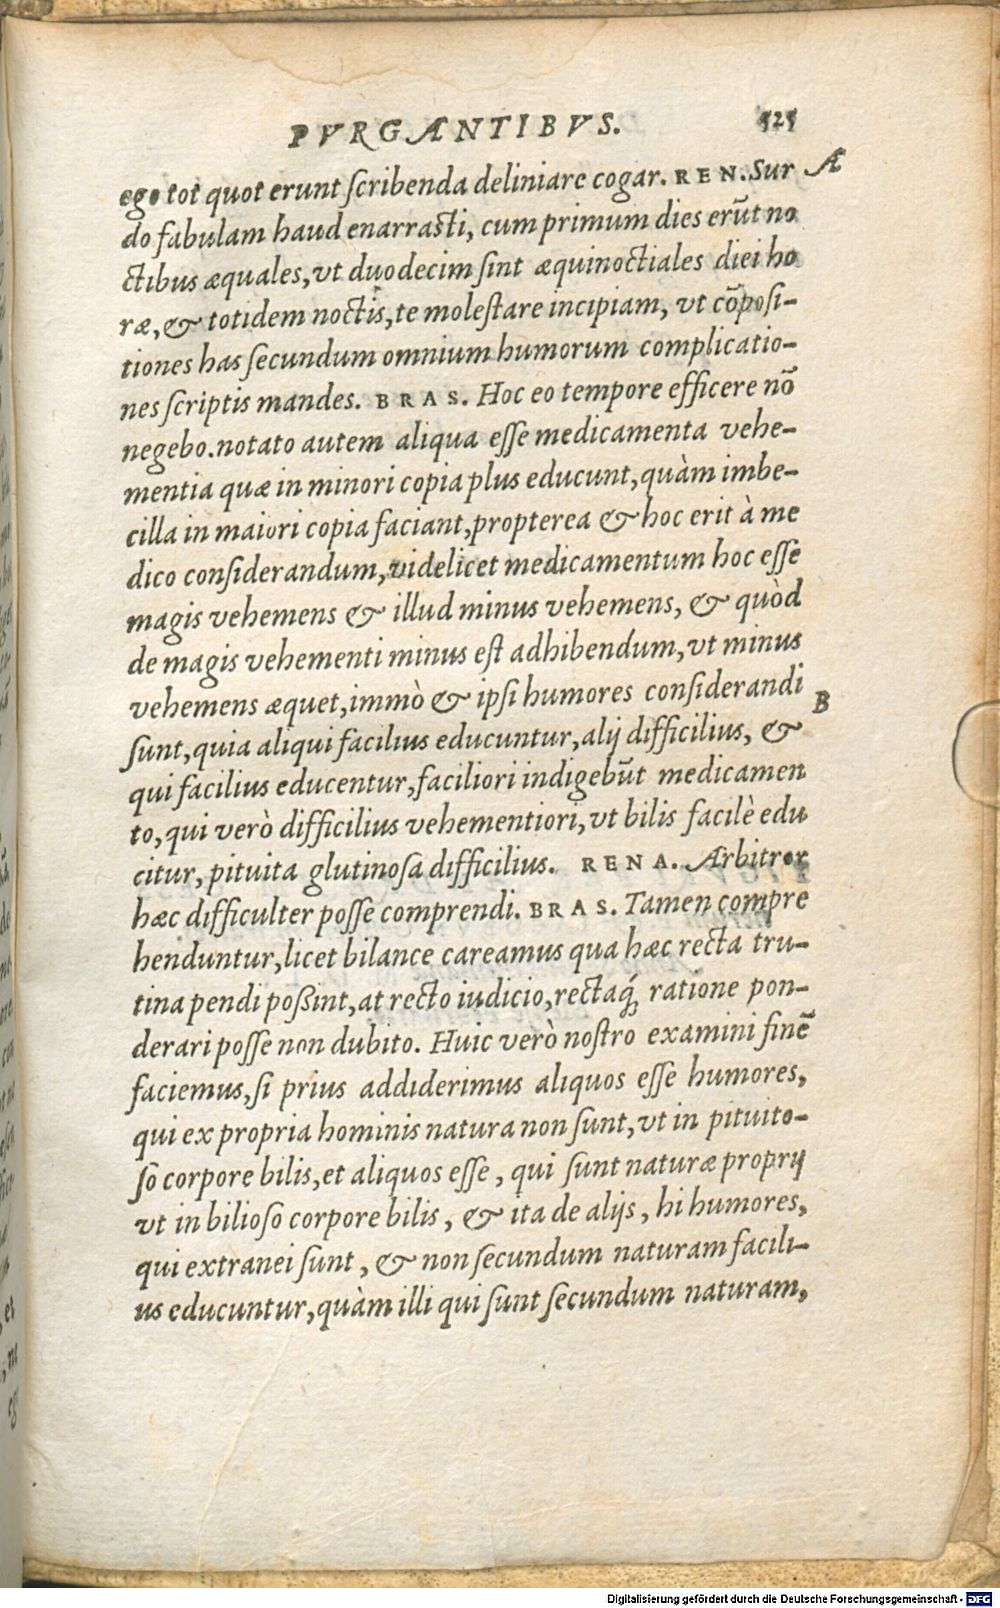 PVRGANTIBVS. 525
ego tot quot erunt ſcribenda deliniare cogar. REN. Sur A
do fabulam haud enarraſti, cum primum dies erūt no
ctibus æquales, vt duodecim ſint æquinoctiales diei ho
ræ, & totidem noctis, te moleſtare incipiam, vt cōpoſi-
tiones has ſecundum omnium humorum complicatio-
nes ſcriptis mandes. BRAS. Hoc eo tempore efficere nō
negebo. notato autem aliqua eſſe medicamenta vehe-
mentia quæ in minori copia plus educunt, quàm imbe-
cilla in maiori copia faciant, propterea & hoc erit à me
dico conſiderandum, videlicet medicamentum hoc eſſe
magis vehemens & illud minus vehemens, & quòd
de magis vehementi minus eſt adhibendum, vt minus
vehemens æquet, immò & ipſi humores conſiderandi B
ſunt, quia aliqui facilius educuntur, alij difficilius, &
qui facilius educentur, faciliori indigebūt medicamen
to, qui verò difficilius vehementiori, vt bilis facilè edu
citur, pituita glutinoſa difficilius. RENA. Arbitror
hæc difficulter poſſe comprendi. BRAS. Tamen compre
henduntur, licet bilance careamus qua hæc recta tru-
tina pendi poßint, at recto iudicio, rectaq́; ratione pon-
derari poſſe non dubito. Huic verò noſtro examini finē
faciemus, ſi prius addiderimus aliquos eſſe humores,
qui ex propria hominis natura non ſunt, vt in pituito-
ſo corpore bilis, et aliquos eſſe, qui ſunt naturæ proprij
vt in bilioſo corpore bilis, & ita de alijs, hi humores,
qui extranei ſunt, & non ſecundum naturam facili-
us educuntur, quàm illi qui ſunt ſecundum naturam,
Digitalisierung gefördert durch die Deutsche Forschungsgemeinschaft - DFG